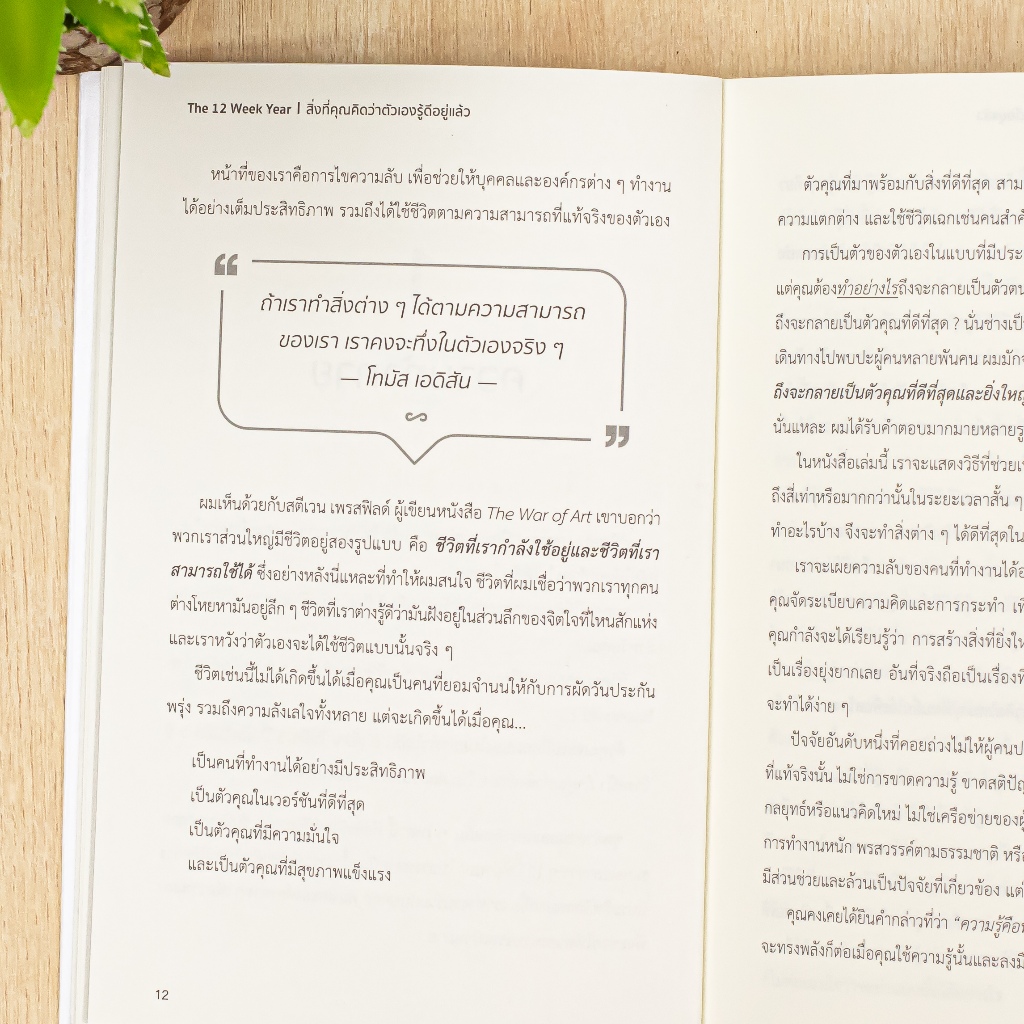 The 12 Week Year | สิ่งที่คุณคิดว่าตัวเองรู้ดีอยู่แล้ว
หน้าที่ของเราคือการไขความลับ เพื่อช่วยให้บุคคลและองค์กรต่าง ๆ ทำงาน
ได้อย่างเต็มประสิทธิภาพ รวมถึงได้ใช้ชีวิตตามความสามารถที่แท้จริงของตัวเอง
“ ถ้าเราทำสิ่งต่าง ๆ ได้ตามความสามารถ
ของเรา เราคงจะทึ่งในตัวเองจริง ๆ
— โทมัส เอดิสัน — ”
ผมเห็นด้วยกับสตีเวน เพรสฟิลด์ ผู้เขียนหนังสือ The War of Art เขาบอกว่า
พวกเราส่วนใหญ่มีชีวิตอยู่สองรูปแบบ คือ ชีวิตที่เรากำลังใช้อยู่และชีวิตที่เรา
สามารถใช้ได้ ซึ่งอย่างหลังนี่แหละที่ทำให้ผมสนใจ ชีวิตที่ผมเชื่อว่าพวกเราทุกคน
ต่างโหยหามันอยู่ลึก ๆ ชีวิตที่เราต่างรู้ดีว่ามันฝังอยู่ในส่วนลึกของจิตใจที่ไหนสักแห่ง
และเราหวังว่าตัวเองจะได้ใช้ชีวิตแบบนั้นจริง ๆ
ชีวิตเช่นนี้ไม่ได้เกิดขึ้นได้เมื่อคุณเป็นคนที่ยอมจำนนให้กับการผัดวันประกัน
พรุ่ง รวมถึงความลังเลใจทั้งหลาย แต่จะเกิดขึ้นได้เมื่อคุณ...
เป็นคนที่ทำงานได้อย่างมีประสิทธิภาพ
เป็นตัวคุณในเวอร์ชันที่ดีที่สุด
เป็นตัวคุณที่มีความมั่นใจ
และเป็นตัวคุณที่มีสุขภาพแข็งแรง
12
ตัวคุณที่มาพร้อมกับสิ่งที่ดีที่สุด สาม
ความแตกต่าง และใช้ชีวิตเฉกเช่นคนสำคั
การเป็นตัวของตัวเองในแบบที่มีประ
แต่คุณต้องทำอย่างไรถึงจะกลายเป็นตัวตน
ถึงจะกลายเป็นตัวคุณที่ดีที่สุด ? นั่นช่างเป็
เดินทางไปพบปะผู้คนหลายพันคน ผมมัก
ถึงจะกลายเป็นตัวคุณที่ดีที่สุดและยิ่งใหญ่
นั่นแหละ ผมได้รับคำตอบมากมายหลายรู
ในหนังสือเล่มนี้ เราจะแสดงวิธีที่ช่วยเ
ถึงสี่เท่าหรือมากกว่านั้นในระยะเวลาสั้น ๆ
ทำอะไรบ้าง จึงจะทำสิ่งต่าง ๆ ได้ดีที่สุดใน
เราจะเผยความลับของคนที่ทำงานได้อ
คุณจัดระเบียบความคิดและการกระทำ เพื
คุณกำลังจะได้เรียนรู้ว่า การสร้างสิ่งที่ยิ่งให
เป็นเรื่องยุ่งยากเลย อันที่จริงถือเป็นเรื่องที
จะทำได้ง่าย ๆ
ปัจจัยอันดับหนึ่งที่คอยถ่วงไม่ให้ผู้คนป
ที่แท้จริงนั้น ไม่ใช่การขาดความรู้ ขาดสติปัญ
กลยุทธ์หรือแนวคิดใหม่ ไม่ใช่เครือข่ายของผู
การทำงานหนัก พรสวรรค์ตามธรรมชาติ หรือ
มีส่วนช่วยและล้วนเป็นปัจจัยที่เกี่ยวข้อง แต่
คุณคงเคยได้ยินคำกล่าวที่ว่า “ความรู้คือ
จะทรงพลังก็ต่อเมื่อคุณใช้ความรู้นั้นและลงมื